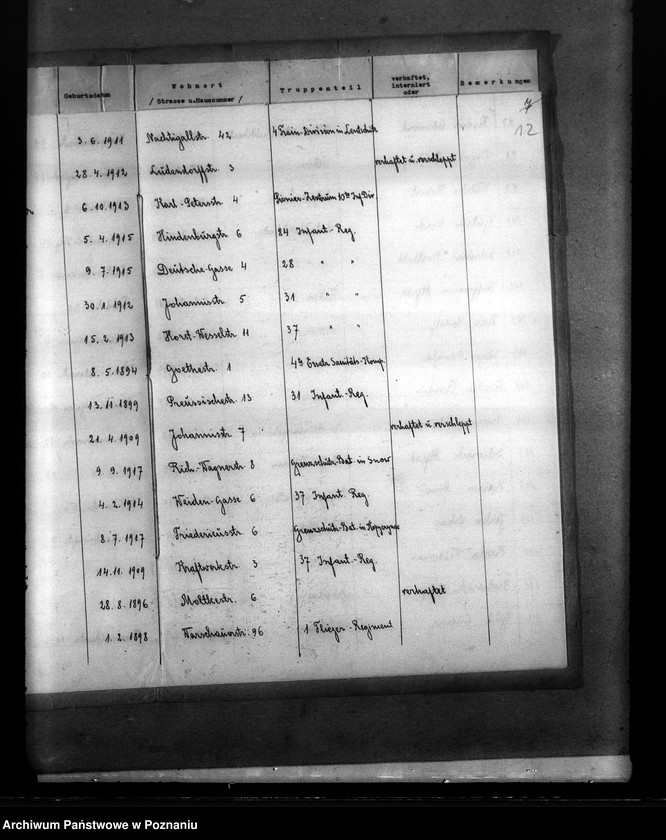 Geburtsdatum Wohnort / Strasse u.Hausnummer / Truppenteil verhaftet, interniert oder Bemerkungen
7
12
3. 6. 1911 Nachtigallstr. 42 4 Train-Division in
28. 4. 1912 Ludendorffstr. 3 verhaftet u. verschleppt
6. 10. 1913 Karl-Petersstr. 4 10te Inf Div
5. 4. 1915 Hindenburgstr. 6 84 Infant.-Reg.
9. 7. 1915 Deutsche-Gasse 4 28 " "
30. 1. 1912 Johannisstr. 5 31 " "
15. 2. 1913 Horst-Wesselstr. 11 37 " "
8. 5. 1894 Goethestr. 1 4te Ersatz Sanitäts-Komp.
13. 11. 1899 Preussischestr. 13 31 Infant.-Reg.
21. 4. 1909 Johannisstr. 7 verhaftet u. verschleppt
9. 9. 1917 Rich.-Wagnerstr. 8 Grenzschutz-Bat. in
4. 2. 1914 Weiden-Gasse 6 37 Infant. Reg.
8. 7. 1917 Friedericusstr. 6 Grenzschutz-Bat. in
14. 11. 1909 Kraftwerkstr. 3 37 Infant.-Reg.
28. 8. 1896 Moltkestr. 6 verhaftet
1. 2. 1898 Warschauerstr. 96 1 Flieger-Regiment
Archiwum Państwowe w Poznaniu